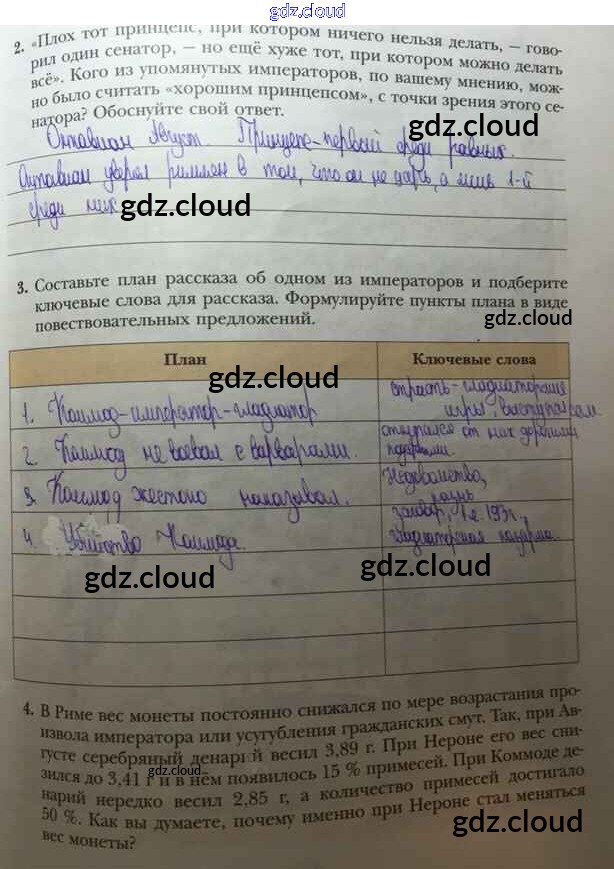 gdz.cloud
2. «Плох тот принцепс, при котором ничего нельзя делать, — гово-
рил один сенатор, — но ещё хуже тот, при котором можно делать
всё». Кого из упомянутых императоров, по вашему мнению, мож-
но было считать «хорошим принцепсом», с точки зрения этого се-
натора? Обоснуйте свой ответ.
gdz.cloud
Октавиан Август. Принцепс-первый среди равных.
Октавиан уверял римлян в том, что он не царь, а лишь 1-й
среди них
gdz.cloud
3. Составьте план рассказа об одном из императоров и подберите
ключевые слова для рассказа. Формулируйте пункты плана в виде
повествовательных предложений.
gdz.cloud
План Ключевые слова
gdz.cloud
1. Коммод-император-гладиатор страсть-гладиаторские
игры, выступал
2. Коммод не воевал с варварами. откупался от них дорогими
подарками.
3. Коммод жестоко наказывал. Недовольства,
казнь
4. Убийство Коммода. заговор, 193г.
гладиаторская казарма.
gdz.cloud
gdz.cloud
4. В Риме вес монеты постоянно снижался по мере возрастания про-
извола императора или усугубления гражданских смут. Так, при Ав-
густе серебряный денарий весил 3,89 г. При Нероне его вес сни-
зился до 3,41 г и в нём появилось 15 % примесей. При Коммоде де-
нарий нередко весил 2,85 г, а количество примесей достигало
50 %. Как вы думаете, почему именно при Нероне стал меняться
вес монеты?
gdz.cloud
gdz.cloud